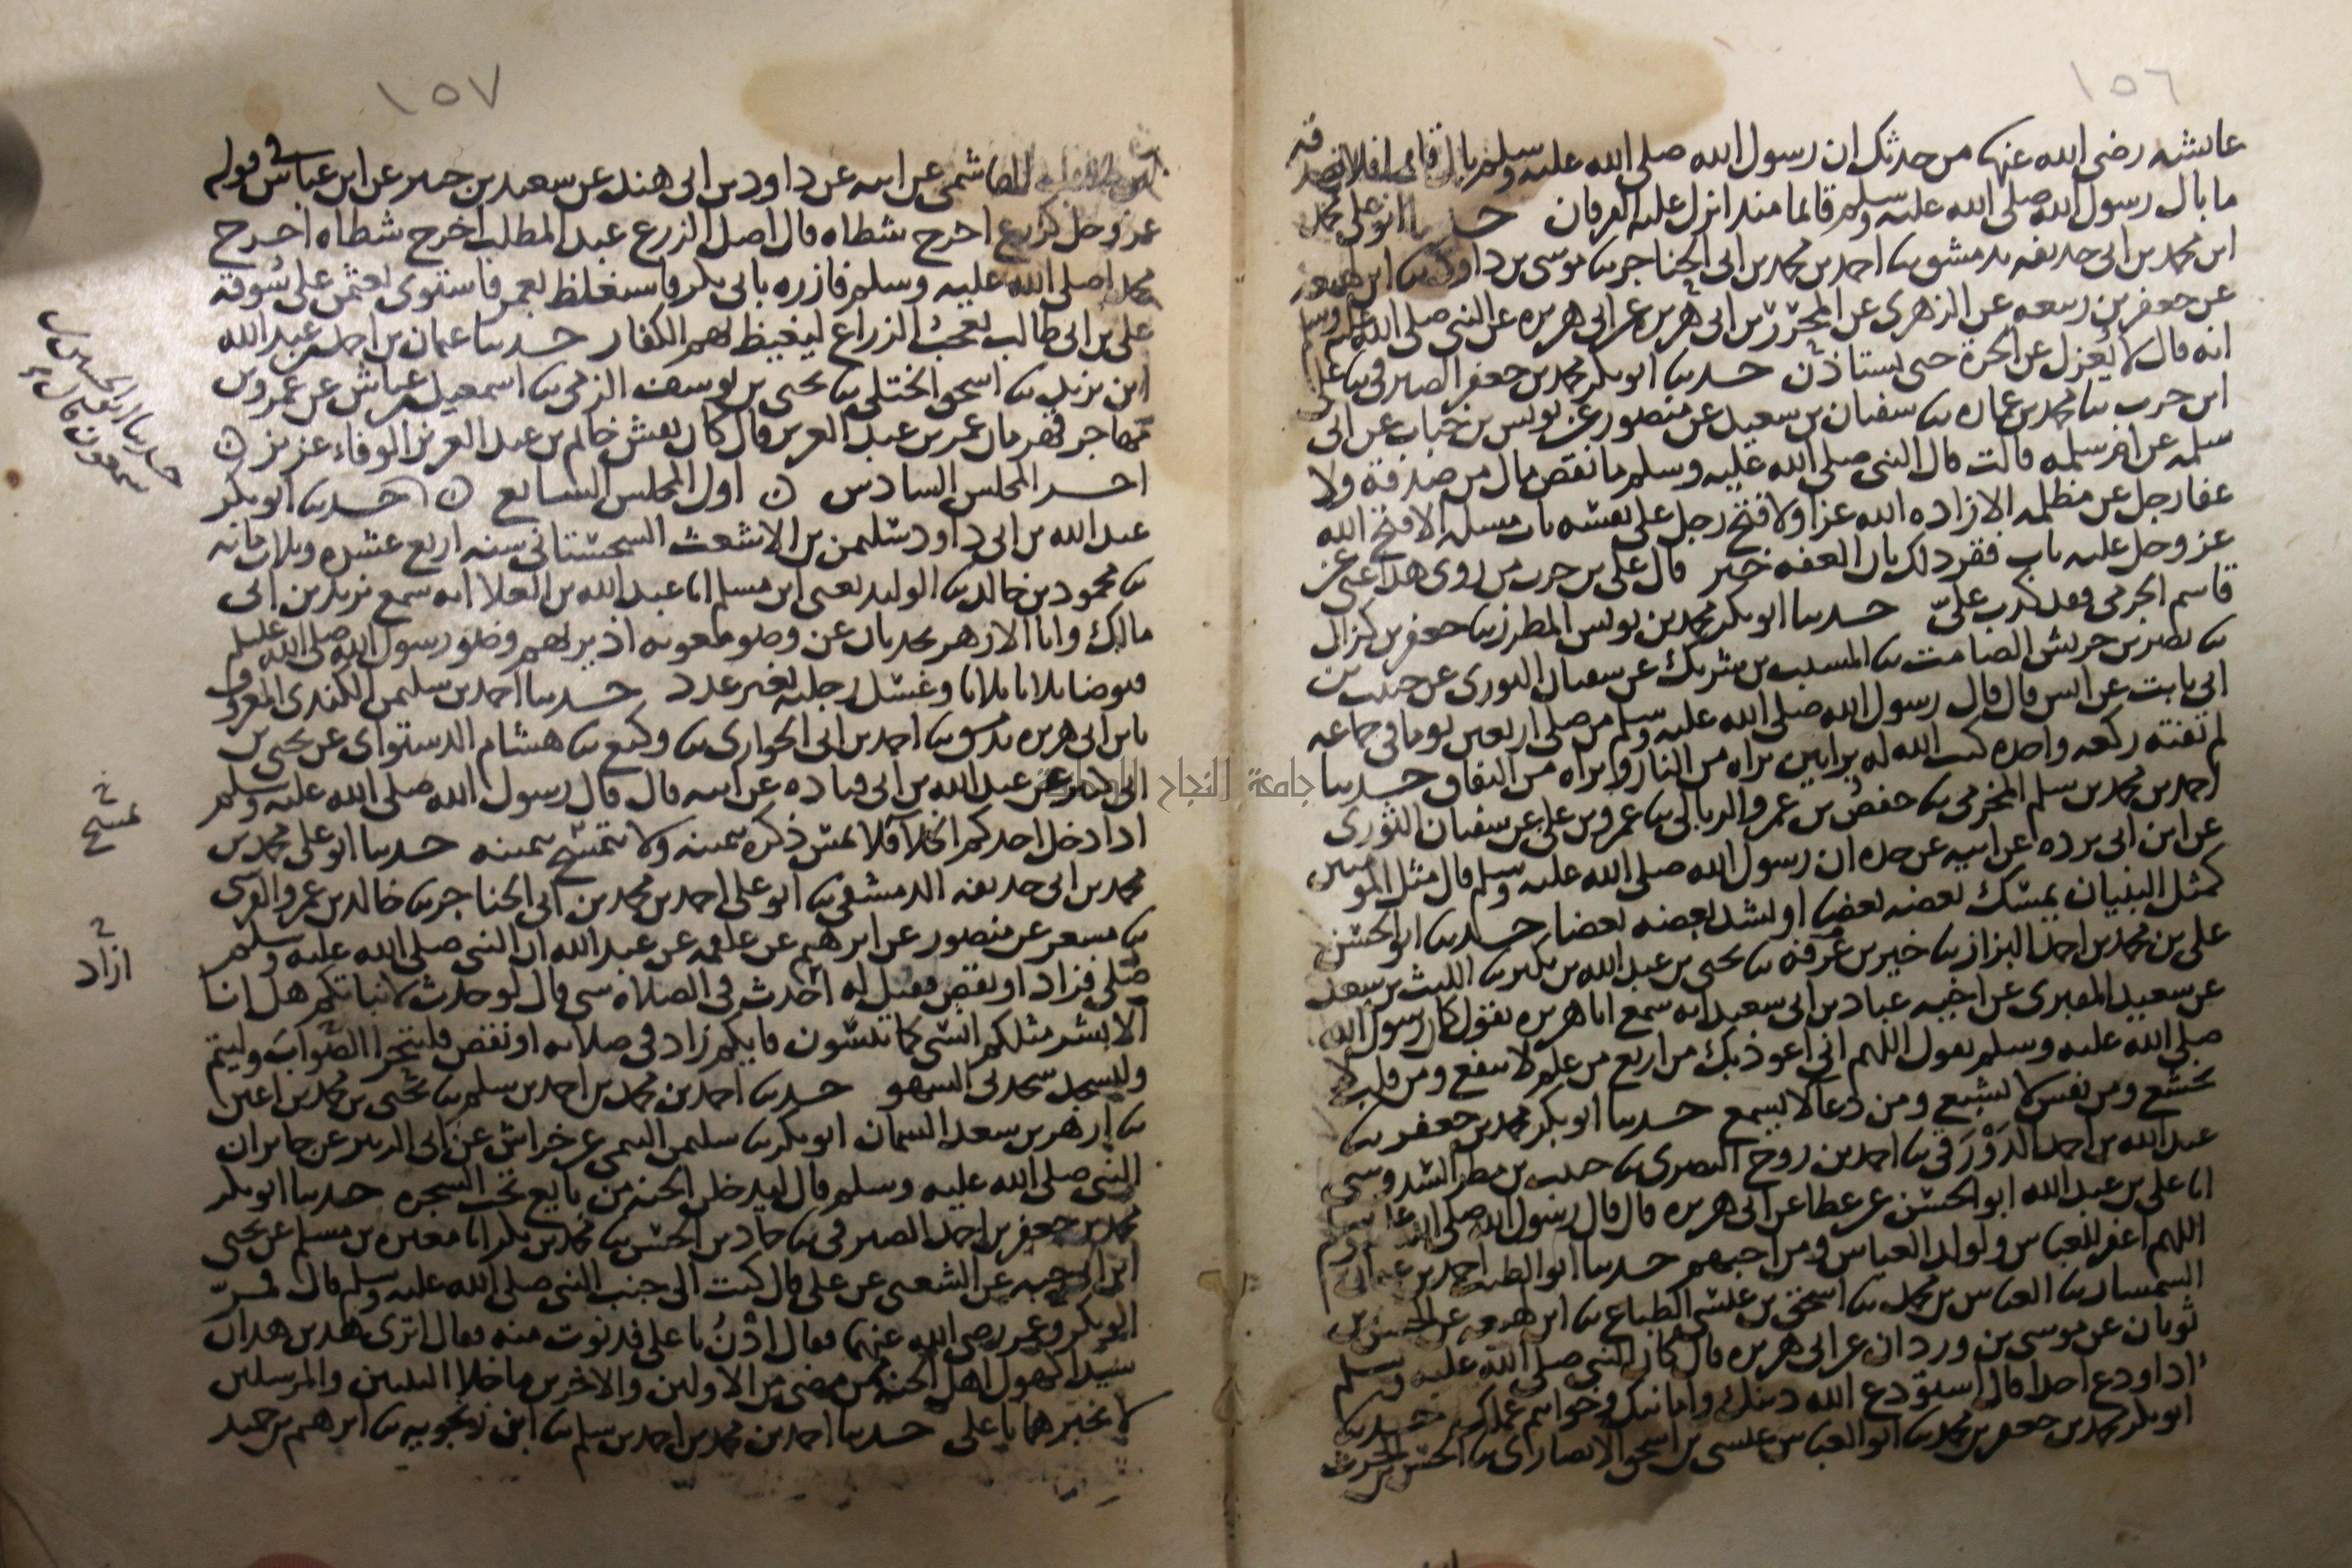 ١٥٦
عايشه رضى الله عنها من حدثك ان رسول الله صلى الله عليه وسلم بال قائما فلا تصدقه
ما بال رسول الله صلى الله عليه وسلم قائما منذ انزل عليه الفرقان حدثنا ابو على محمد
ابن محمد بن ابى حذيفه بدمشق نا احمد بن محمد بن ابى الخناجر نا موسى بن داود نا ابن لهيعه
عن جعفر بن ربيعه عن الزهرى عن المحرر بن ابى هريره عن ابى هريره عن النبى صلى الله عليه وسلم
انه قال لا يعزل عن الحرة حتى تستاذن حدثنا ابو بكر محمد بن جعفر الصيرفى نا على
ابن حرب نا محمد بن عماره نا سفيان بن سعيد عن منصور عن يونس بن خباب عن ابى
سلمه عن ام سلمه قالت قال النبى صلى الله عليه وسلم ما نقص مال من صدقة ولا
عفا رجل عن مظلمه الا زاده الله عزا ولا فتح رجل على نفسه باب مسله الا فتح الله
عز وجل عليه باب فقر ذلك بان العفه خير قال على بن حرب من روى هذا عنى عن
قاسم الجرمى فقد كذب علىّ حدثنا ابو بكر محمد بن يونس المطرز نا جعفر بن كزال
نا نصر بن حريش الصامت نا المسيب بن شريك عن سفيان الثورى عن حبيب بن
ابى ثابت عن انس قال قال رسول الله صلى الله عليه وسلم من صلى اربعين يوما فى جماعه
لم تفته ركعه واحده كتب الله له براتين براه من النار وبراه من النفاق حدثنا
احمد بن محمد بن سلم المخرمى نا حفص بن عمرو الربالى نا عمرو بن على عن سفيان الثورى
عن ابن ابى برده عن ابيه عن جده ان رسول الله صلى الله عليه وسلم قال مثل المومنين
كمثل البنيان يمسك بعضه بعضا او يشد بعضه بعضا حدثنا ابو الحسن
على بن محمد بن احمد البزاز نا خير بن عرفه نا يحيى بن عبد الله بن بكير نا الليث بن سعد
عن سعيد المقبرى عن اخيه عباد بن ابى سعيد انه سمع ابا هريره يقول كان رسول الله
صلى الله عليه وسلم يقول اللهم انى اعوذ بك من اربع من علم لا ينفع ومن قلب لا
يخشع ومن نفس لا تشبع ومن دعا لا يسمع حدثنا ابو بكر محمد بن جعفر نا
عبد الله بن احمد الدَوْرَقى نا احمد بن روح البصرى نا حبيب بن مطر السدوسى
انا على بن عبد الله ابو الحسن عن عطا عن ابى هريره قال قال رسول الله صلى الله عليه وسلم
اللهم اغفر للعباس ولولد العباس ومن احبهم حدثنا ابو الطيب احمد بن
السمسار نا العباس بن محمد نا اسحق بن عيسى الطباع نا ابن لهيعه عن الحسن بن
ثوبان عن موسى بن وردان عن ابى هريره قال كان النبى صلى الله عليه وسلم
اذا ودع احدا قال استودع الله دينك وامانتك وخواتم عملك حدثنا
ابو بكر محمد بن جعفر بن محمد نا ابو العباس عيسى بن اسحق الانصارى نا الحسن بن الحرث
١٥٧
الهاشمى عن ابيه عن داود بن ابى هند عن سعيد بن جبير عن ابن عباس فى قوله
عز وجل كزرع اخرج شطاه قال اصل الزرع عبد المطلب اخرج شطاه اخرج
محمدا صلى الله عليه وسلم فازره بابى بكر فاستغلظ بعمر فاستوى بعثمن على سوقه
على بن ابى طالب يعجب الزراع ليغيظ بهم الكفار حدثنا عثمان بن احمد بن عبد الله
ابن يزيد نا اسحق الختلى نا يحيى بن يوسف الزمى نا اسمعيل بن عياش عن عمرو بن
مهاجر قهرمان عمر بن عبد العزيز قال كان نقش خاتم بن عبد العزيز الوفاء عزيز
اخر المجلس السادس اول المجلس السابع حدثنا ابو بكر
عبد الله بن ابى داود سليمن بن الاشعث السجستانى سنه اربع عشره وثلاث مائه
نا محمود بن خالد نا الوليد يعنى ابن مسلم انا عبد الله بن العلا انه سمع يزيد بن ابى
مالك وابا الازهر يحدثان عن وضو معويه اذ يريهم وضو رسول الله صلى الله عليه وسلم
فتوضا ثلاثا ثلاثا وغسل رجليه بغير عدد حدثنا احمد بن سليمن الكندى المعروف
بابن ابى هريره بدمشق نا احمد بن ابى الحوارى نا وكيع نا هشام الدستواى عن يحيى بن
ابى كثير عن عبد الله بن ابى قتاده عن ابيه قال قال رسول الله صلى الله عليه وسلم
اذا دخل احدكم الخلا فلا يمس ذكره بيمينه ولا يتمسح بيمينه حدثنا ابو على محمد بن
محمد بن ابى حذيفه الدمشقى نا ابو على احمد بن محمد بن ابى الخناجر نا خالد بن عمرو القرشى
نا مسعر عن منصور عن ابرهيم عن علقمه عن عبد الله ان النبى صلى الله عليه وسلم
صلى فزاد او نقص فقيل له احدث فى الصلاه شى قال لو حدث لانباتكم هل انا
الا بشر مثلكم انسى كما تنسون فايكم زاد فى صلاته او نقص فليتحرا الصواب وليتم
وليسجد سجدتى السهو حدثنا احمد بن محمد بن احمد بن سلم نا يحيى بن محمد بن اعين
نا ازهر بن سعد السمان ابو بكر نا سليمن التيمى عن خراش عن ابى الزبير عن جابر ان
النبى صلى الله عليه وسلم قال ليدخلن الجنه من بايع تحت الشجره حدثنا ابو بكر
محمد بن جعفر بن احمد الصيرفى نا حماد بن الحسن نا محمد بن بكر انا مغيره بن مسلم عن يحيى
ابن ابى حيه عن الشعبى عن على قال كنت الى جنب النبى صلى الله عليه وسلم قال فمرّ
ابو بكر وعمر رضى الله عنهما فقال ادْنُ يا على فدنوت منه فقال اترى هذين هذان
سيدا كهول اهل الجنه ممن مضى من الاولين والاخرين ما خلا النبيين والمرسلين
لا تخبرهما يا على حدثنا احمد بن محمد بن احمد بن سلم نا ابن زنجويه نا ابرهيم بن حميد
حدثنا ابو الحسين بن سمعون قال
يمسح
ازاد
جامعة النجاح الوطنية